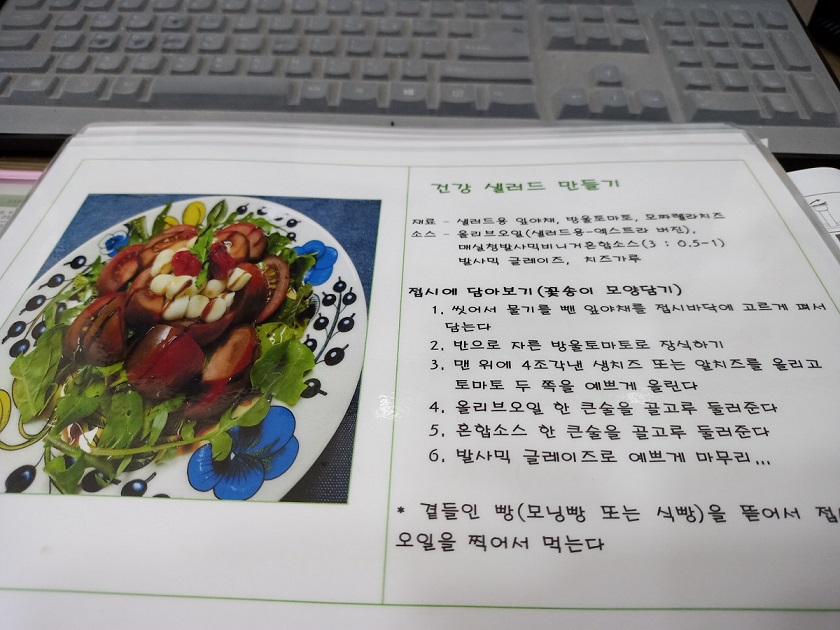 건강 샐러드 만들기
재료 - 샐러드용 잎야채, 방울토마토, 모짜렐라치즈
소스 - 올리브오일(샐러드용-엑스트라 버진),
매실청발사믹비니거혼합소스(3 : 0.5-1)
발사믹 글레이즈, 치즈가루
접시에 담아보기(꽃송이 모양담기)
1. 씻어서 물기를 뺀 잎야채를 접시바닥에 고르게 펴서
담는다
2. 반으로 자른 방울토마토로 장식하기
3. 맨 위에 4조각낸 생치즈 또는 알치즈를 올리고
토마토 두 쪽을 예쁘게 올린다
4. 올리브오일 한 큰술을 골고루 둘러준다
5. 혼합소스 한 큰술을 골고루 둘러준다
6. 발사믹 글레이즈로 예쁘게 마무리...
* 곁들인 빵(모닝빵 또는 식빵)을 뜯어서
오일을 찍어서 먹는다